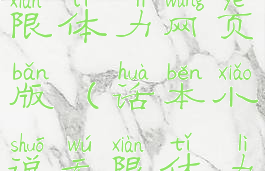 xiàn tǐ lì wǎng yè
限体力网页
bǎn huà běn xiǎo
版(话本小
shuō wú xiàn tǐ lì
说无限体力